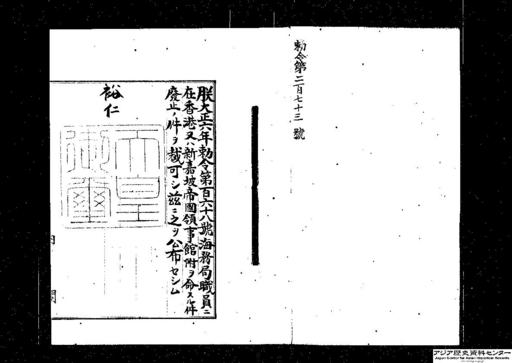 勅令第二百七十三號
朕大正六年勅令第百六十八號海務局職員ニ
在香港又ハ新嘉坡帝國領事館附ヲ命スル件
廢止ノ件ヲ裁可シ茲ニ之ヲ公布セシム
裕仁
天皇
御璽
内閣
アジア歴史資料センター
Japan Center for Asian Historical Records